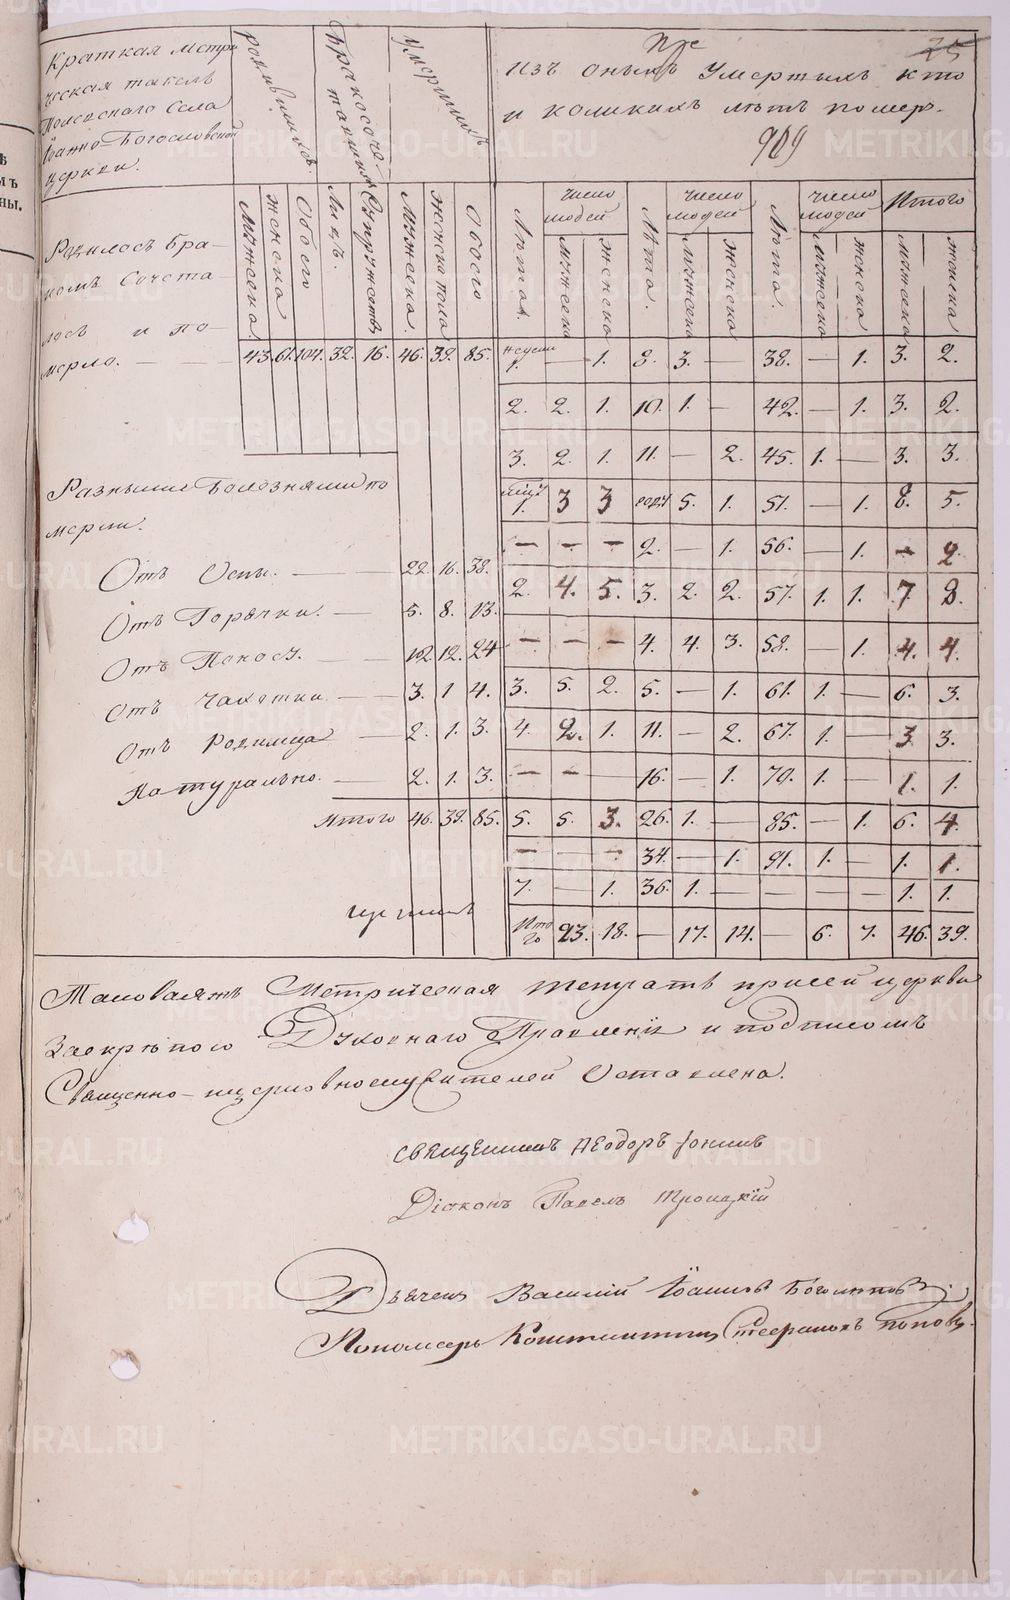 Краткая Метри
ческая табель
Села
Iоанно-Богословской
церкви.
родившихся.
Бракосоче-
тавшихся
Умершихъ
Изъ оныхъ Умершихъ кто
и коликихъ лѣтъ померъ.
75
909
Родилось бра-
комъ Сочета-
лось и по-
мерло. —
Мужеска.
женска
Обоего
Лицъ.
Супружествъ
Мужеска.
женска пола
Обоего
43. 61. 104. 32. 16. 46. 39. 85.
Лѣта.
число людей
мужеска
женска
Лѣта.
число людей
мужеска
женска
Лѣта.
число людей
мужеска
женска
Итого
мужеска
женска
недели 1. — 1. 8. 3. — 38. — 1. 3. 2.
2. 2. 1. 10. 1. — 42. — 1. 3. 2.
3. 2. 1. 11. — 2. 45. 1. — 3. 3.
1. 3 3 годы 5. 1. 51. — 1. 8. 5.
— — — 2. — 1. 56. — 1. — 2.
2. 4. 5. 3. 2. 2. 57. 1. 1. 7 8.
— — — 4. 4. 3. 58. — 1. 4. 4.
3. 5. 2. 5. — 1. 61. 1. — 6. 3.
4. 2. 1. 11. — 2. 67. 1. — 3 3.
— — — 16. — 1. 70. 1. — 1. 1.
5. 5. 3. 26. 1. — 85. — 1. 6. 4.
— — — 34. — 1. 91. 1. — 1. 1.
7. — 1. 36. 1. — — — — 1. 1.
Итого 23. 18. — 17. 14. — 6. 7. 46. 39.
Разными Болезнями по
мерли.
Отъ Оспы. — 22. 16. 38.
Отъ Горячки. — 5. 8. 13.
Отъ Поносу. — 12. 12. 24
Отъ Чахотки — 3. 1 4.
Отъ Родимца — 2. 1. 3.
Натурально. — 2. 1. 3.
Итого 46. 39. 85.
Таковаяжъ Метрическая тетрать присей церкви
Заскрѣпою Духовнаго Правленiя и подписомъ
Священно-ицерковнослужителей Оставлена.
Священникъ Ѳеодоръ Iонинъ
Дiаконъ Павелъ Троицкiй
Дьячец Василий Iоаннъ
Пономарь Константинъ Стефановъ Поповъ.
METRIKI.GASO-URAL.RU